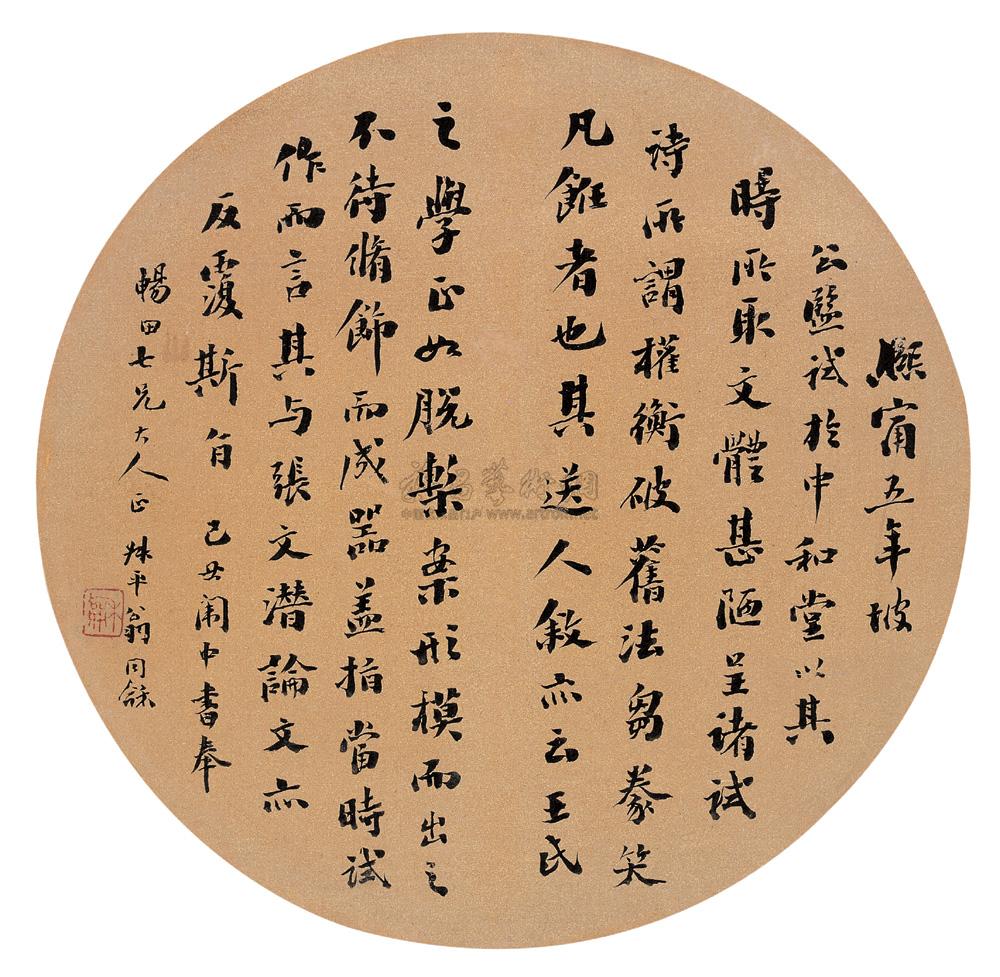 熙甯五年坡
公監試於中和堂以其
時所取文體甚陋呈諸試
詩所謂權衡破舊法芻豢笑
凡飪者也其送人敘亦云王氏
之學正如脫槧案形模而出之
不待脩飾而成器盖指當時試
作而言其与張文潛論文亦
反覆斯旨 己丑闈中書奉
暢田七兄大人正 叔平翁同龢
www.artron.net